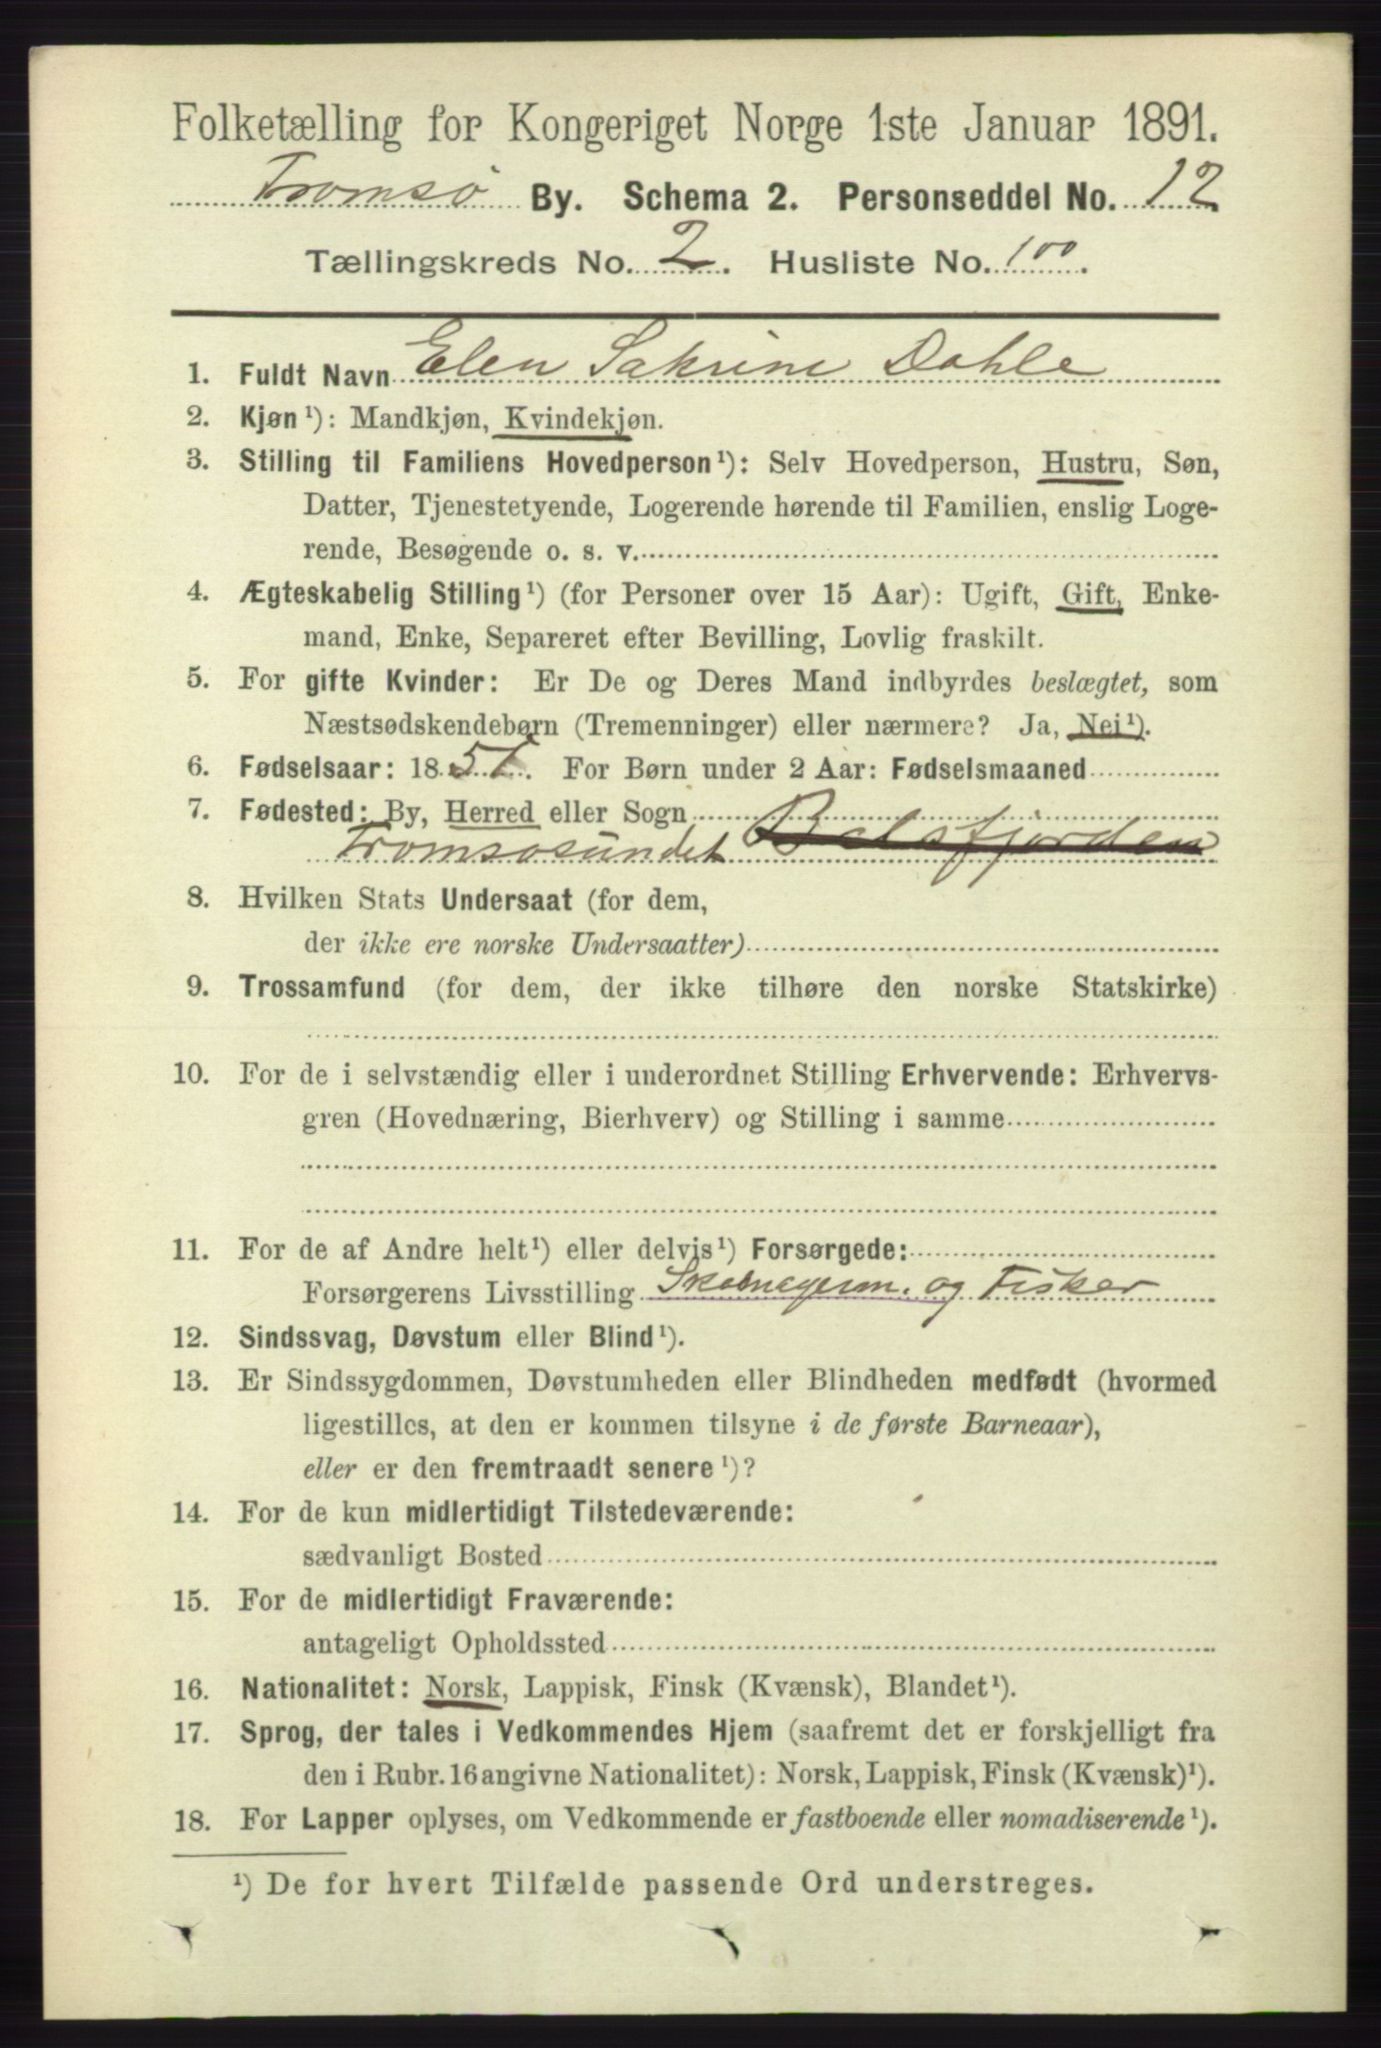 Folketælling for Kongeriget Norge 1ste Januar 1891.
Tromsø By. Schema 2. Personseddel No. 12
Tællingskreds No. 2. Husliste No. 100.
1. Fuldt Navn Elen Sakrine Dahle
2. Kjøn¹): Mandkjøn, Kvindekjøn.
3. Stilling til Familiens Hovedperson¹): Selv Hovedperson, Hustru, Søn,
Datter, Tjenestetyende, Logerende hørende til Familien, enslig Loge-
rende, Besøgende o. s. v.
4. Ægteskabelig Stilling¹) (for Personer over 15 Aar): Ugift, Gift, Enke-
mand, Enke, Separeret efter Bevilling, Lovlig fraskilt.
5. For gifte Kvinder: Er De og Deres Mand indbyrdes beslægtet, som
Næstsødskendebørn (Tremenninger) eller nærmere? Ja, Nei¹).
6. Fødselsaar: 18 For Børn under 2 Aar: Fødselsmaaned
7. Fødested: By, Herred eller Sogn
Tromsøsundet Balsfjorden
8. Hvilken Stats Undersaat (for dem,
der ikke ere norske Undersaatter)
9. Trossamfund (for dem, der ikke tilhøre den norske Statskirke)
10. For de i selvstændig eller i underordnet Stilling Erhvervende: Erhvervs-
gren (Hovednæring, Bierhverv) og Stilling i samme
11. For de af Andre helt¹) eller delvis¹) Forsørgede:
Forsørgerens Livsstilling og Fisker
12. Sindssvag, Døvstum eller Blind¹).
13. Er Sindssygdommen, Døvstumheden eller Blindheden medfødt (hvormed
ligestilles, at den er kommen tilsyne i de første Barneaar),
eller er den fremtraadt senere¹)?
14. For de kun midlertidigt Tilstedeværende:
sædvanligt Bosted
15. For de midlertidigt Fraværende:
antageligt Opholdssted
16. Nationalitet: Norsk, Lappisk, Finsk (Kvænsk), Blandet¹).
17. Sprog, der tales i Vedkommendes Hjem (saafremt det er forskjelligt fra
den i Rubr. 16 angivne Nationalitet): Norsk, Lappisk, Finsk (Kvænsk)¹).
18. For Lapper oplyses, om Vedkommende er fastboende eller nomadiserende¹).
¹) De for hvert Tilfælde passende Ord understreges.